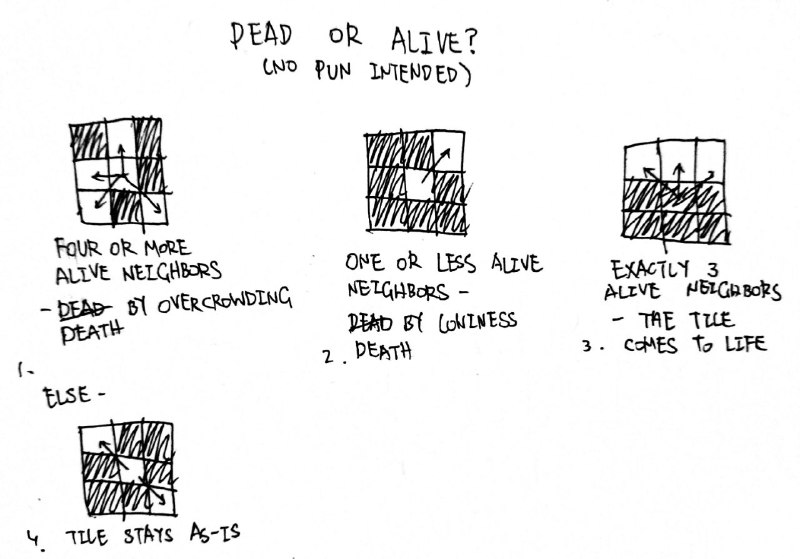 DEAD OR ALIVE?
(NO PUN INTENDED)
FOUR OR MORE
ALIVE NEIGHBORS
- DEAD BY OVERCROWDING
DEATH
1.
ONE OR LESS ALIVE
NEIGHBORS -
DEAD BY LONINESS
2. DEATH
EXACTLY 3
ALIVE NEIGHBORS
- THE TILE
3. COMES TO LIFE
ELSE -
4. TILE STAYS AS-IS